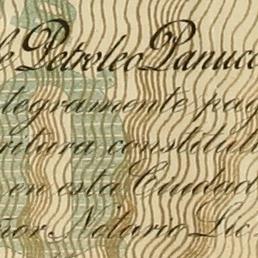 de Petroleo Panuco
tegramente pag
ritura constitut
en esta Ciudad
ñor Notario Lic.